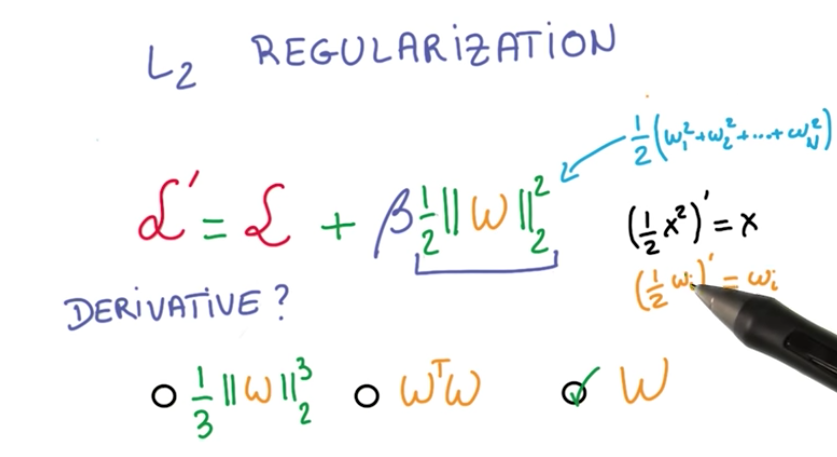 L₂ REGULARIZATION
½(ω₁²+ω₂²+...+ω_N²)
ℒ' = ℒ + β ½‖ω‖₂²
(½x²)' = x
(½ωᵢ)' = ωᵢ
DERIVATIVE?
⅓‖ω‖₂³ ωᵀω ✓ W